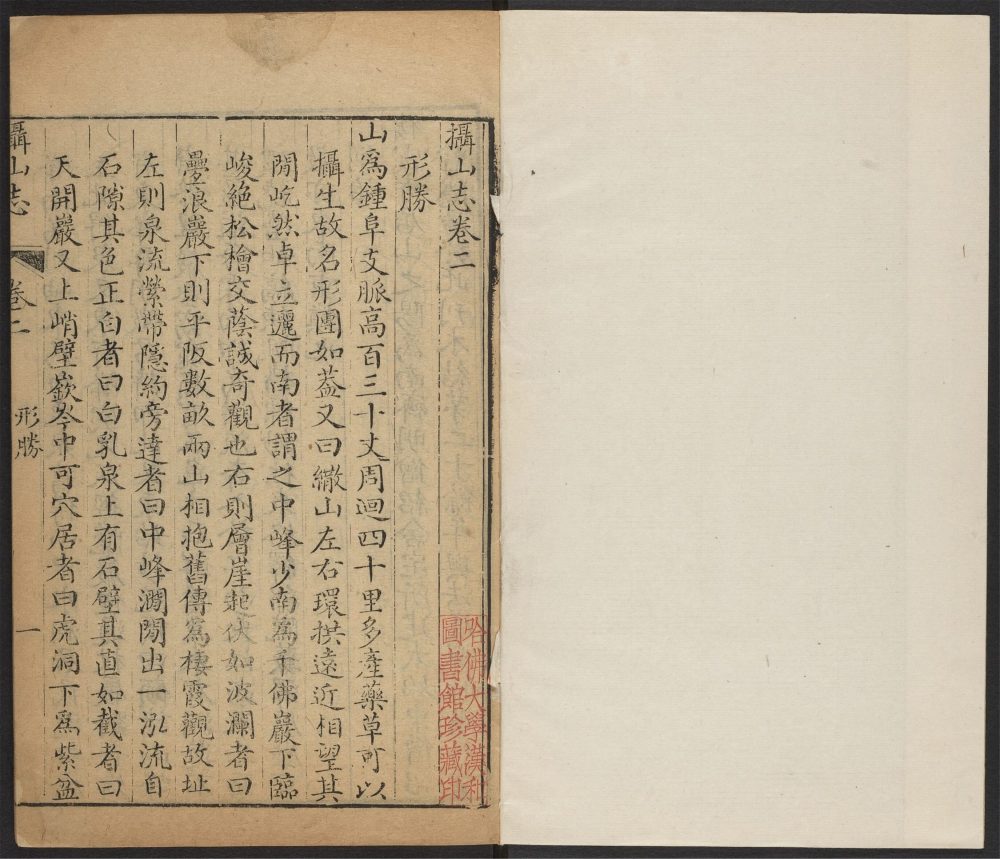 攝山志卷二
形勝
山爲鍾阜支脈高百三十丈周迴四十里多產藥草可以
攝生故名形團如蓋又曰繖山左右環拱遠近相望其
閒屹然卓立邐而南者謂之中峰少南爲千佛巖下臨
峻絶松檜交蔭誠奇觀也右則層崖起伏如波瀾者曰
疊浪巖下則平阪數畝兩山相抱舊傳爲棲霞觀故址
左則泉流縈帶隱約旁達者曰中峰澗閒出一泓流自
石隙其色正白者曰白乳泉上有石壁其直如截者曰
天開巖又上峭壁嶔岑中可穴居者曰虎洞下爲紫盆
攝山志
卷二
形勝
一
哈佛大學漢和
圖書館珍藏印